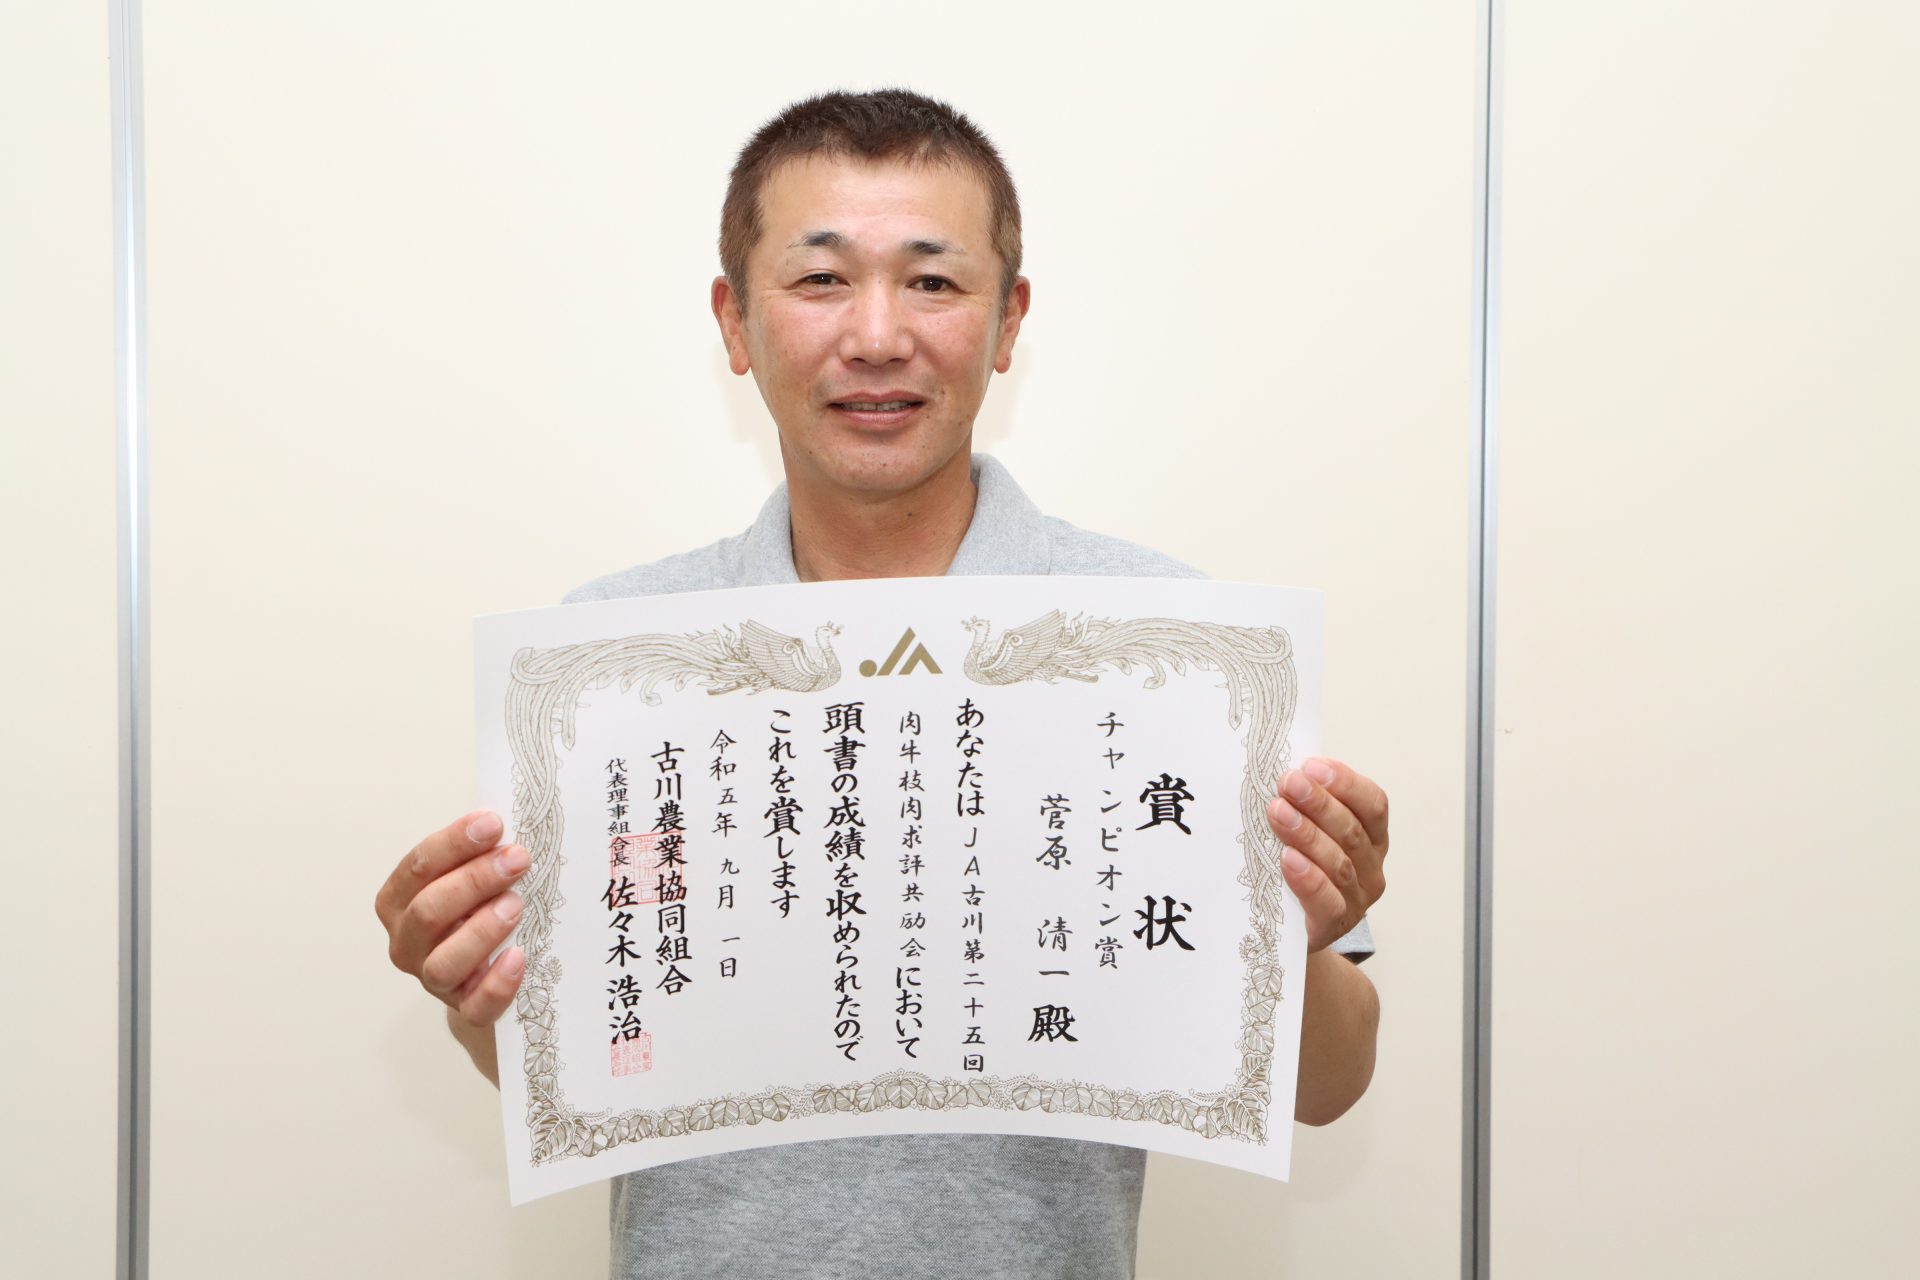 賞状
チャンピオン賞
菅原 清一 殿
あなたはJA古川第二十五回
肉牛枝肉求評共励会において
頭書の成績を収められたので
これを賞します
令和五年 九月 一日
古川農業協同組合
代表理事組合長 佐々木 浩治